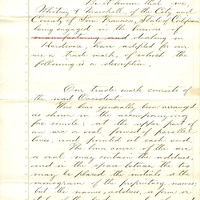 Be it known that we,
Whitney & Marshall, of the City and
County of San Francisco, State of California
being engaged in the business of
manufacturing and dealing in
Hardware, have adopted for our
use a Trade mark, of which the
following is a description.
Our trade mark consists of
the word Occident.
This has generally been arranged
as shown in the accompanying
fac simile, at the upper part of
an oval formed of parallel
lines, and pointed at each end.
The lower curve of the
oval may contain the address,
and in the space between the two
may be placed the initials or the
monogram of the proprietary names;
but the names, address, form